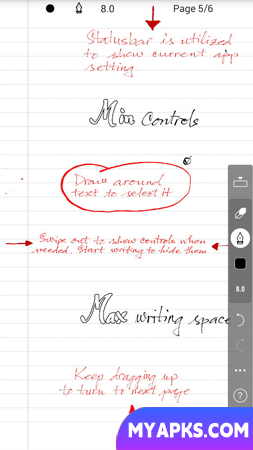 8.0 Page 5/6
Statusbar is utilized
to show current app
setting
Min Controls
Draw around
text to select it
Swipe out to show controls when
needed. Start writing to hide them
8.0
Max writing space
Keep dragging up
to turn to next page
?
MYAPKS.COM